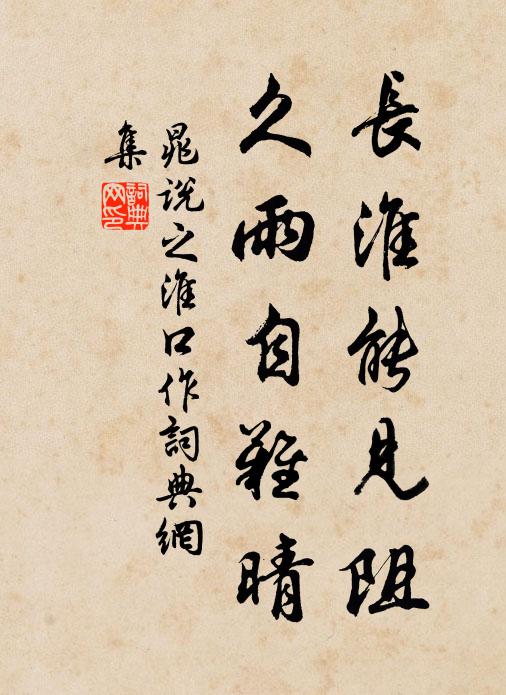 長淮能見阻
久雨自難晴
晁說之淮口作詞典網
集
詞典網印